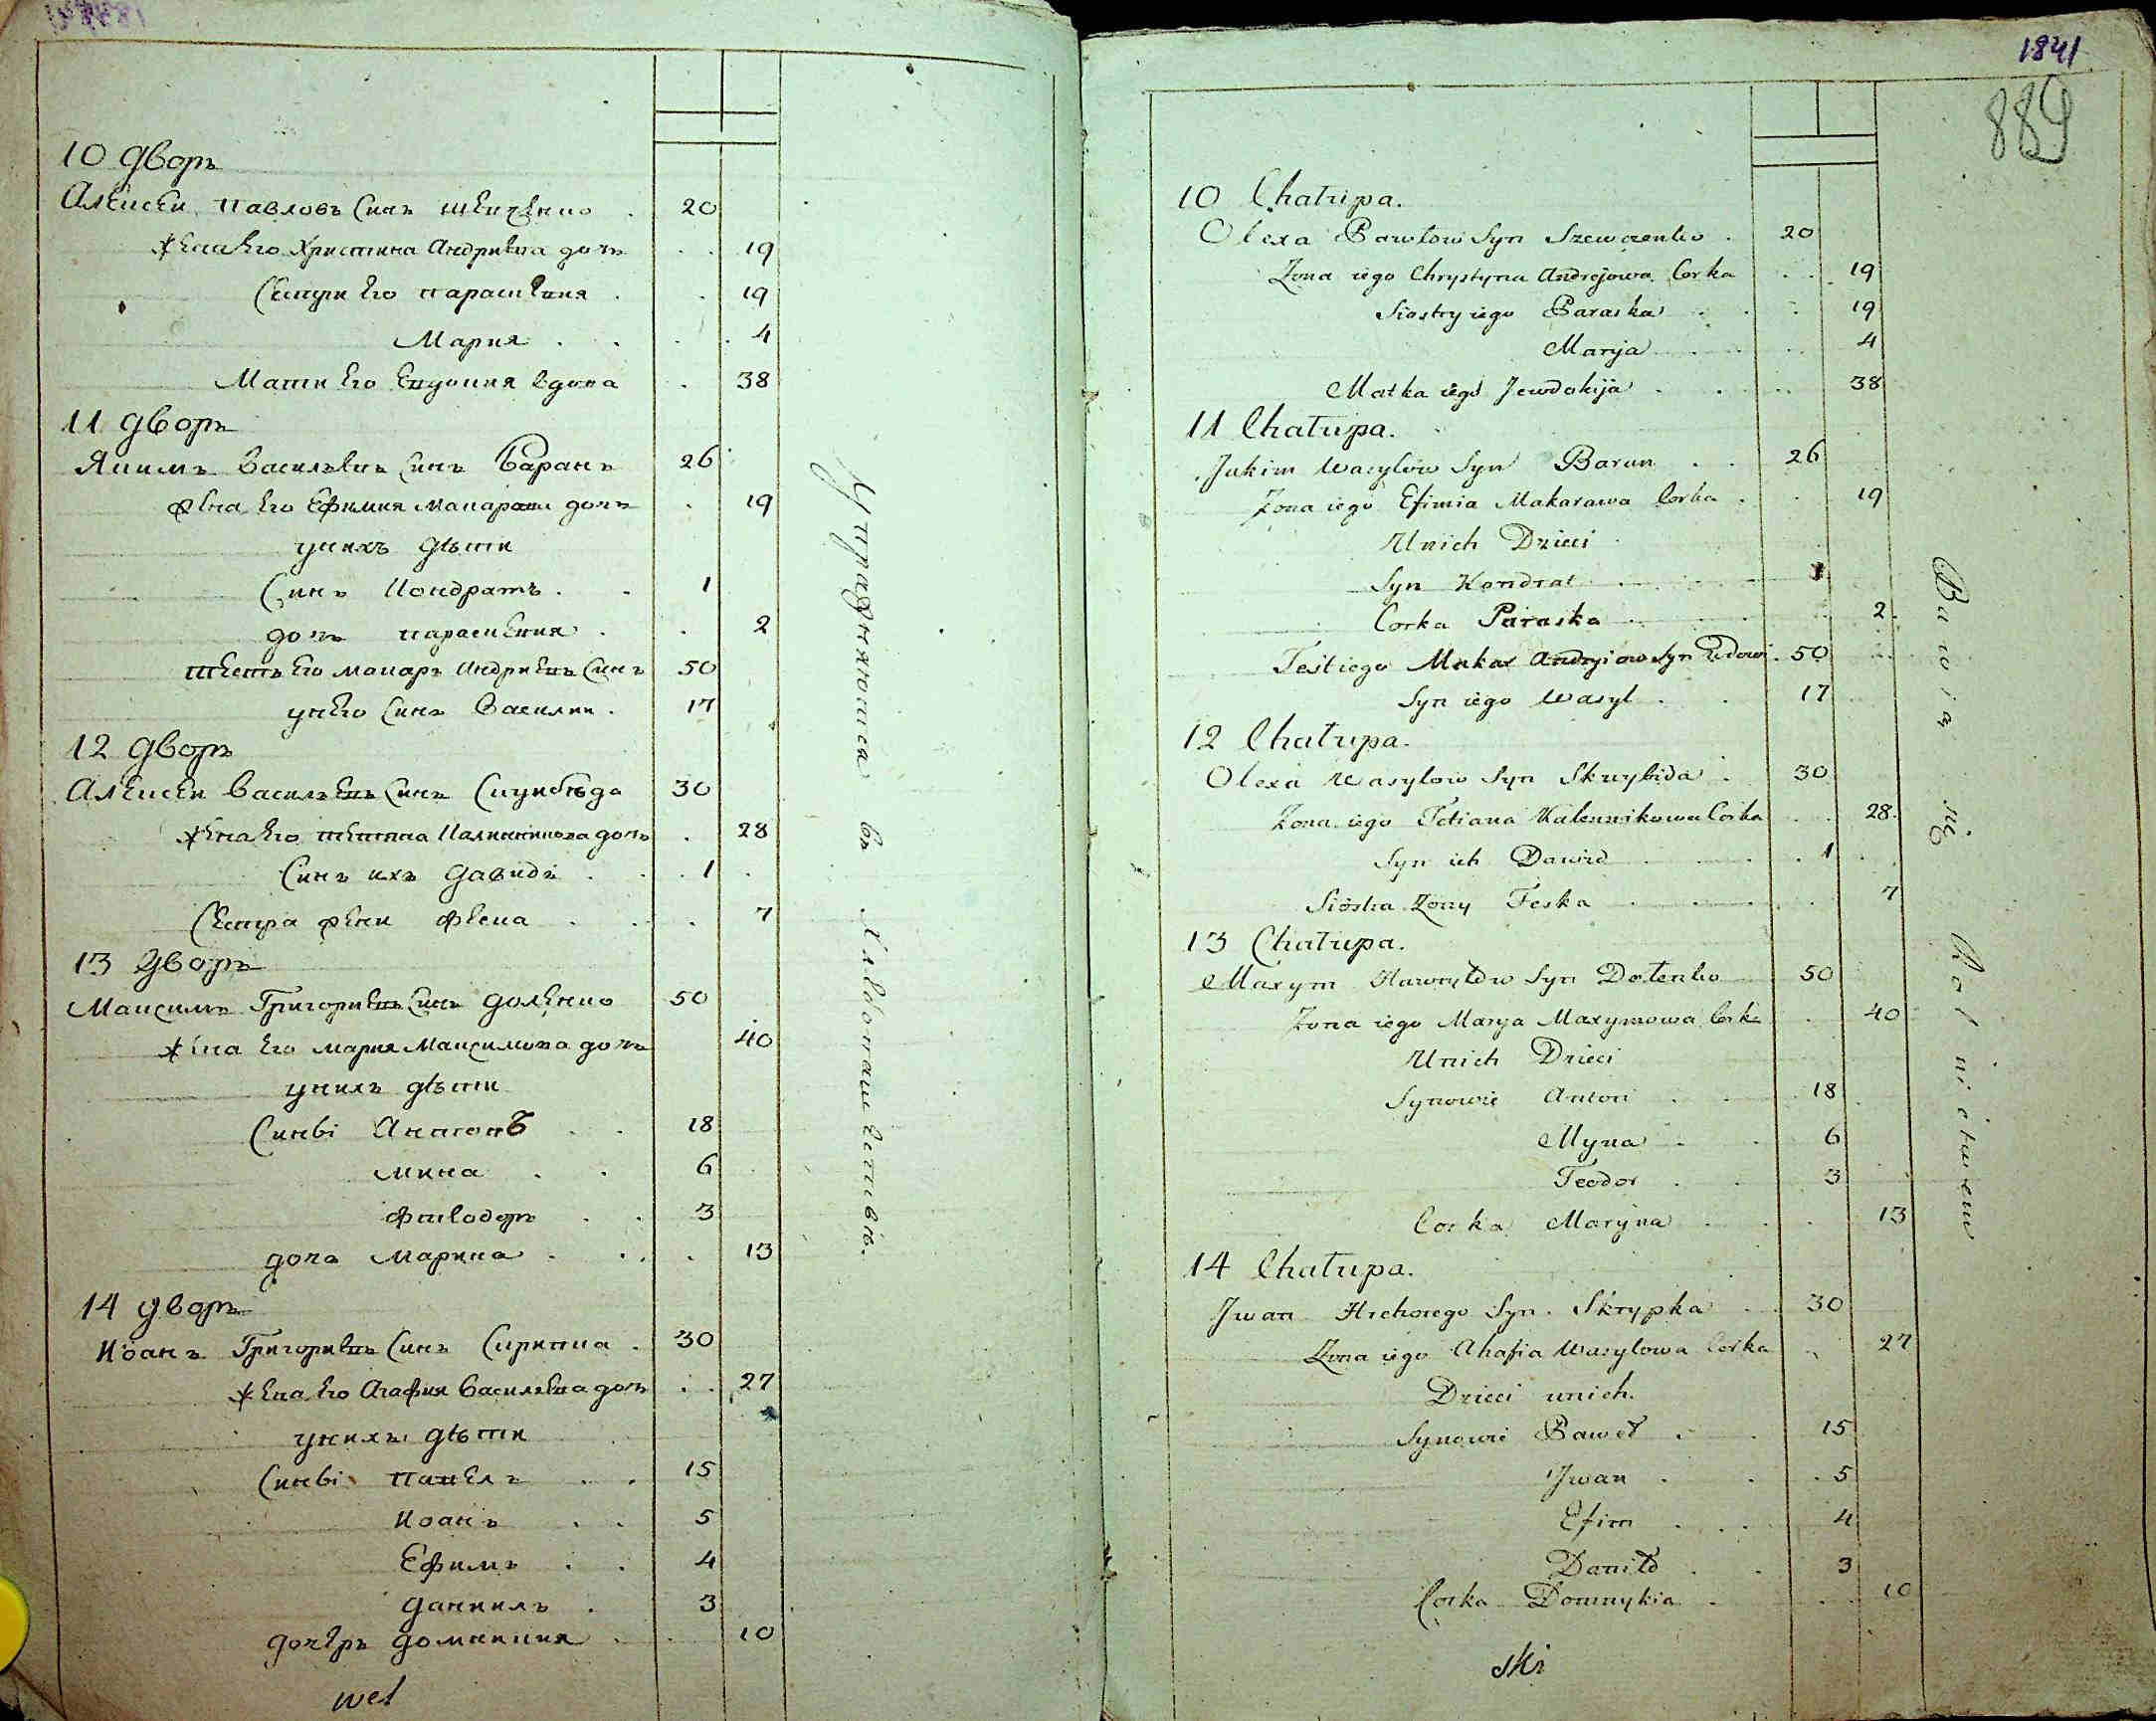 10 дворъ
Алексей Павловъ синъ Шевченко . 20
жена его Христина Андриева дочъ . . 19
сестри его Параскевия . . 19
Мария . . . 4
Мати его Евдокия вдова . 38
11 дворъ
Якимъ Василевъ синъ Баранъ 26
жена его Ефимия Макарова дочъ . 19
у нихъ дѣти
Синъ Кондратъ . . 1
дочъ Параскевия . . 2
тесть его Макаръ Андриевъ синъ 50
у него синъ Василии . 17
12 дворъ
Алексей Василевъ синъ Скуибѣда 30
жена его Тетяна Калиникова дочъ . 28
Синъ ихъ Давидъ . . 1 .
Сестра жени Феска . . . 7
13 дворъ
Максимъ Григориевъ синъ Доленко 50
жена его Мария Максимова дочъ 40
у нихъ дѣти
Синві Антонъ . . 18
Мина . . 6
Фтеодоръ . . 3
дочь Марина . . . 13
14 дворъ
Иоанъ Григориевъ синъ Скрипка . 30
жена его Агафия Василева дочъ . . 27
у нихъ дѣти
Синві Павелъ . . 15
Иоанъ . . 5
Ефимъ . . 4
Даниилъ . 3
дочеръ Домникия . 10
wet
Упражняются въ Хлебопашествѣ.
1841
889
10 Chałupa.
Olexa Pawlow Syn Szewczenko . 20
Zona iego Chrystyna Andrejowa Corka . . 19
Siostry iego Paraska . . 19
Marja . . 4
Matka iego Jewdokija . . 38
11 Chałupa.
Jakim Wasylow Syn Baran . . 26
Zona iego Efimia Makarowa Corka . . 19
Unich Dzieci
Syn Kondrat . . 1
Corka Paraska . . 2
Teść iego Makar Andryiow Syn Wdowi . 50
Syn iego Wasyl . . 17
12 Chałupa.
Olexa Wasylow Syn Skuybida . 30
Zona iego Tetiana Kalennikowa Corka . . 28
Syn ich Dawid . . 1
Siostra Zony Feska . . 7
13 Chałupa.
Maxym Hawryłow Syn Dolenko 50
Zona iego Marya Maxymowa Corka . 40
Unich Dzieci
Synowie Anton . . 18
Myna . . 6
Teodor . . 3
Corka Maryna . . 13
14 Chałupa.
Jwan Hrehorego Syn . Skrypka . . 30
Zona iego Ahafia Wasylowa Corka . 27
Dzieci unich.
Synowie Paweł . . 15
Jwan . . 5
Efim . . . 4
Daniło . . 3
Corka Domnykia . . . 10
ski
Bawią się Rolnictwem